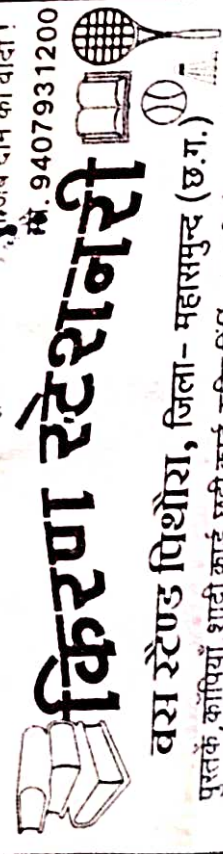 दाम का वादा !
मो. 9407931200
किरण स्टेशनरी
बस स्टैण्ड पिथौरा, जिला- महासमुन्द (छ.ग.)
पुस्तकें, कॉपियाँ, शादी कार्ड, छट्ठी कार्ड,